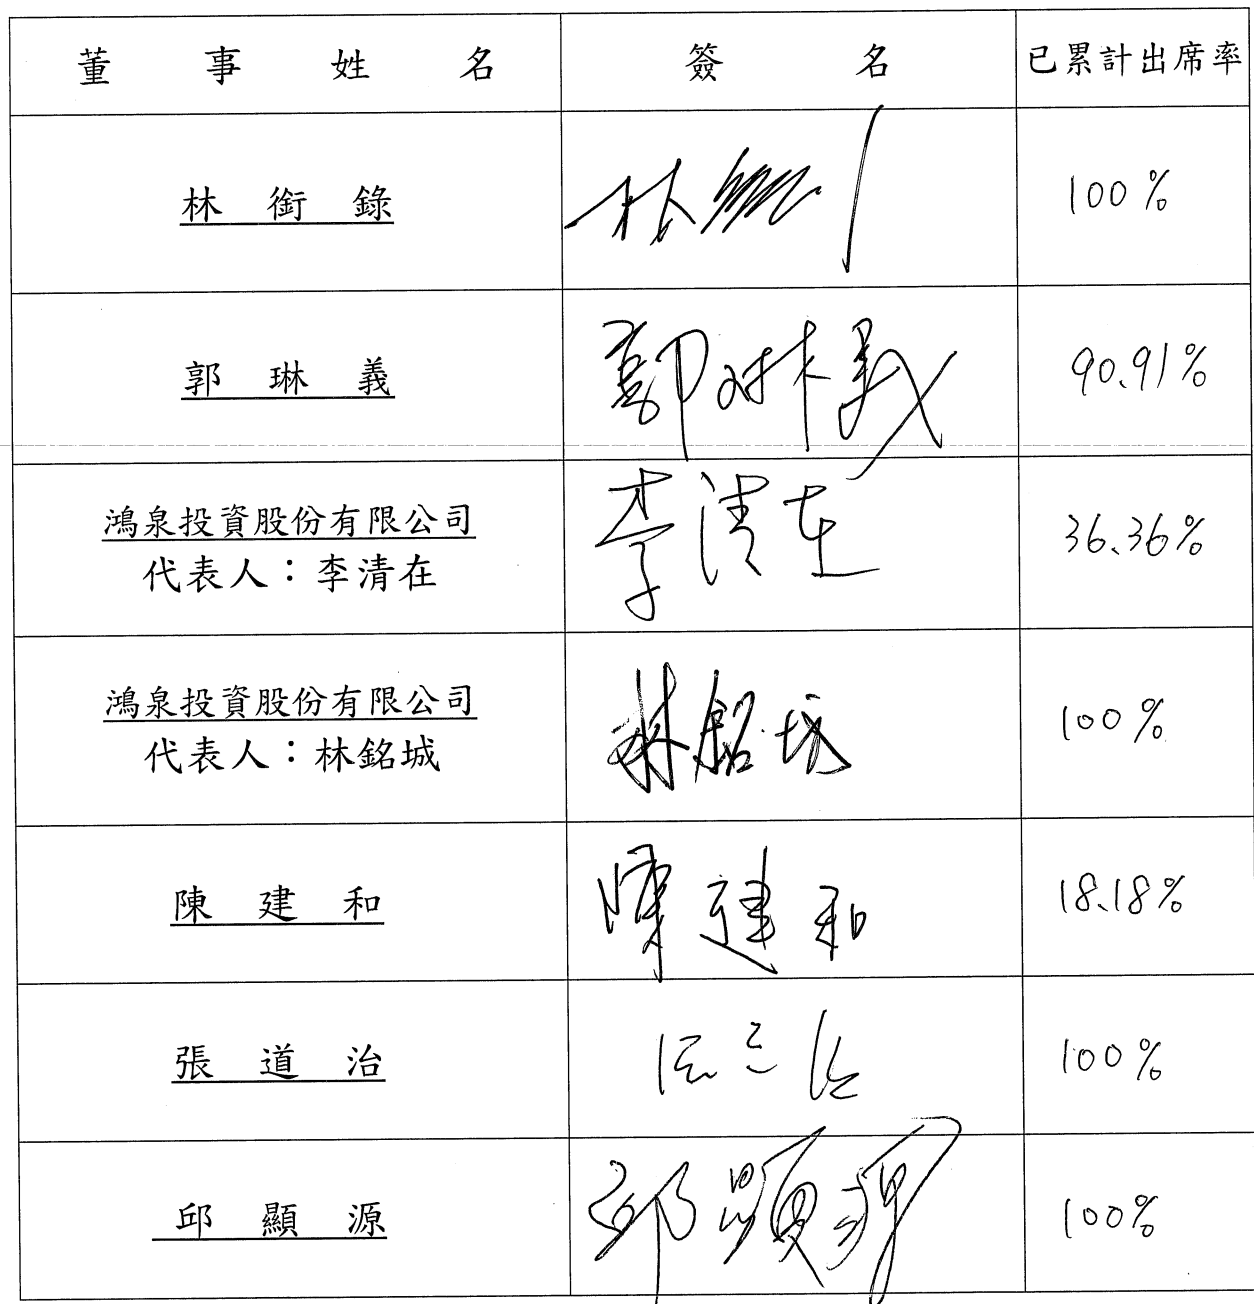 董事姓名 簽名 已累計出席率
林銜錄 林 100%
郭琳義 郭琳義 90.91%
鴻泉投資股份有限公司
代表人：李清在 李清在 36.36%
鴻泉投資股份有限公司
代表人：林銘城 林銘城 100%
陳建和 陳建和 18.18%
張道治 100%
邱顯源 邱顯源 100%